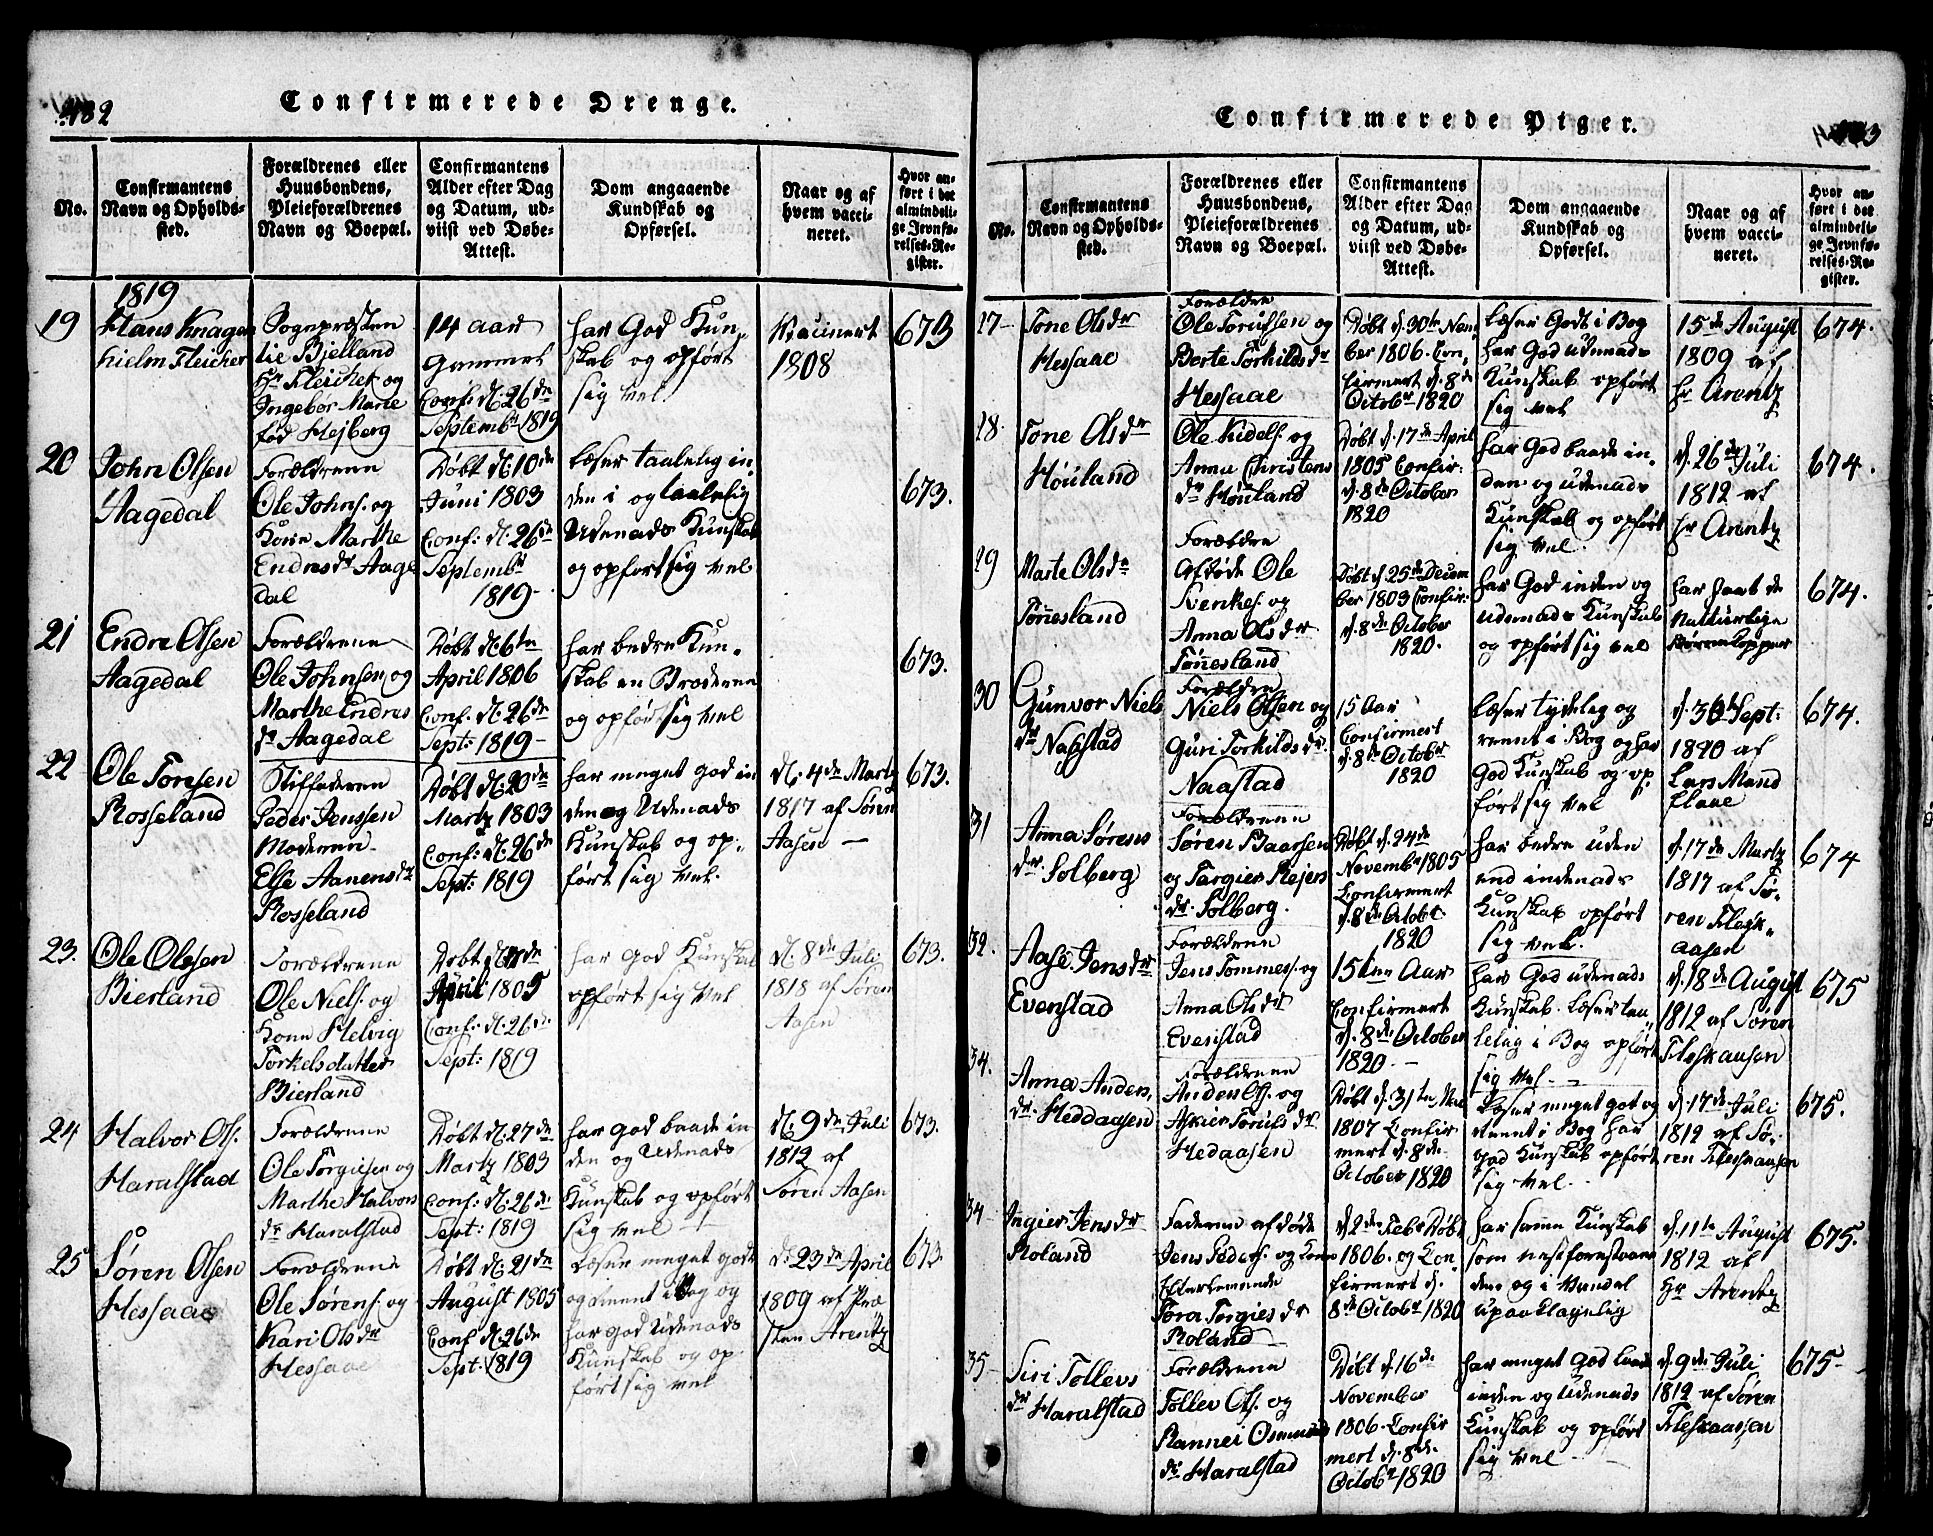 482
Confirmerede Drenge.
No.
Confirmantens
Navn og Opholds-
sted.
Forældrenes eller
Huusbondens,
Pleieforældrenes
Navn og Boepæl.
Confirmantens
Alder efter Dag
og Datum, ud-
viist ved Døbe-
Attest.
Dom angaaende
Kundskab og
Opførsel.
Naar og af
hvem vacci-
neret.
Hvor an-
ført i det
almindeli-
ge Jevnfø-
relses-Re-
gister.
1819
19
Hans Knagen
hielm Fleicher
Sognpræsten
til Bjelland
Hr Fleicher og
Ingebor Marie
fød Hejberg
14 aar
Gammel
Conf: d: 26de
Septembr 1819
har God Kun-
skab og opført
sig vel
Vaccinert
1808
673
20
John Olsen
Aagedal
Forældrene
Ole Johns. og
Kone Marthe
Endresdr Aage
dal
Døbt d: 10de
Juni 1803
Conf: d: 26de
Septembr
1819-
læser taalelig in
den i og taalelig
Udenads Kunskab
og opført sig vel
673.
21
Endre Olsen
Aagedal
Forældrene
Ole Johnsen og
Marthe Endres
dr Aagedal
Døbt d: 6te
April 1806
Conf: d: 26de
Sept: 1819-
har bedre Kun-
skab en Broderen
og opført sig vel
673.
22
Ole Toresen
Rosseland
Stiffaderen
Peder Jenssen
Moderen
Else Aanensdr
Rosseland
Døbt d: 20de
Martz 1803
Conf: d: 26de
Sept: 1819
har meget god in
den og Udenads
Kunskab og op-
ført sig vel.
d: 4de Martz
1817 af Søren
Aasen -
673.
23.
Ole Olsen
Bierland
Forældrene
Ole Niels. og
Kone Helvig
Torkelsdatter
Bierland
Døbt d:
April 1805
Conf: d: 26de
Sept: 1819
har god Kunskab
opført sig vel
d. 8de Juli
1818 af Søren
Aasen
673.
24
Halvor Ols.
Haralstad
Forældrene
Ole Torgiesen og
Marthe Halvors
dr Haralstad
Døbt d: 27de
Martz 1803
Conf: d: 26de
Sept: 1819
har god baade in
den og Udenads
Kunskab og opført
sig vel
d: 9de Juli
1812 af
Søren Aasen
673.
25
Søren Olsen
Hessaae
Forældrene
Ole Sørens. og
Kari Olsdr
Hessaae
Døbt d: 21de
August 1805
Conf d: 26de
Sept. 1819
Læser meget godt
og reent i Bog og
har god Udenads
Kunskab og op
ført sig vel
d. 23de April
1809 af Præ
sten Arentz
673
Confirmerede Piger.
No.
Confirmantens
Navn og Opholds-
sted.
Forældrenes eller
Huusbondens,
Pleieforældrenes
Navn og Boepæl.
Confirmantens
Alder efter Dag
og Datum, ud-
viist ved Døbe-
Attest.
Dom angaaende
Kundskab og
Opførsel.
Naar og af
hvem vacci-
neret.
Hvor an-
ført i det
almindeli-
ge Jevnfø-
relses-Re-
gister.
27-
Tone Olsdr
Hessaae
Forældre
Ole Torufsen og
Berte Torkildsdr
Hessaae
Døbt d. 30te Nem
ber 1806. Con,
firmert d. 8de
Octobr 1820
læser Godt i Bog
har God udenads
Kunskab opført
sig vel
15de August
1809 af
Hr Arentz
674.
28.
Tone Olsdr
Høuland
Ole Kidels. og
Anna Christens
dr Høuland
Døbt d. 17de April
1805 Confir:
d. 8de October
1820
har God baade in,
den og udenads
Kunskab og opført
sig vel.
d. 26de Juli
1812 af
Hr Arentz
674.
29
Marte Olsdr
Tønnesland
Forældre
Afdøde Ole
Svenkes. og
Anna Olsdr
Tønnesland
Døbt d. 25de Decem
ber 1803 Confir:
d. 8de October
1820.
har God inden og
udenads Kunskab
og opført sig vel
har havt de
Naturlige
Børnekopper
674.
30
Gunvor Niels
dr Naastad
Forældre
Niels Olsen og
Guri Torkildsdr
Naastad
15 Aar
Confirmert
d. 8de Octobr
1820
læser tydelig og
reent i Bog og har
God Kunskab og op
ført sig vel
d. 30te Sept:
1820 af
Lars Mand
flaae
674.
31
Anna Sørens
dr. Solberg
Forældrene
Søren Baarsen
og Targier Rejers
dr. Solberg.
Døbt d. 24de
Novembr 1805
Confirmert
d. 8de Octobr
1820
har bedre uden
end indenads
Kunskab opført
sig vel.
d. 17de Martz
1817 af Sø-
ren Flesk-
aasen
674
32.
Aase Jensdr
Evenstad
Forældrene
Jens Tommess. og
Anna Olsdr
Evenstad
15ten Aar
Confirmert
d. 8de October
1820. -
har God udenads
Kunskab læser taa
lelig i Bog opført
sig vel. -
d. 18de August
1812 af Søren
Fleskaasen
675
34.
Anna Anders,
dr. Heddaasen
Forældrene
Anders Ols. og
Askier Torufsdr
Hedaasen
Døbt d. 31te Mai
1807 Confir
mert d. 8de
October 1820
Læser meget god og
reent i Bog har
god Kunskab opført
sig vel.
d. 17de Juli
1812 af Sø-
ren Fleskaasen
675.
34-
Ingier Jensdr
Roland
Faderen afdøde
Jens Peders. og Kone
Efterlevende
Tora Torgiesdr
Roland
d. 2de Febr Døbt
1806. og Con,
firmert d.
8de Octobr 1820
har samme Kunskab
som nestforestaaen
den og i Vandel
upaaklagelig
d. 11te August
1812 af
Hr Arentz
675.
35-
Siri Tollevs
dr Haralstad
Forældrene
Tollev Ols. og
Rannei Osmunds
dr Haralstad
Døbt d. 16de
November
1806. Confir
mert d. 8de
Octobr 1820
har meget God baade
inden og Udenads
Kunskab og opført
sig vel
d. 9de Juli
1812 af Søren
Fleskaassen
675-